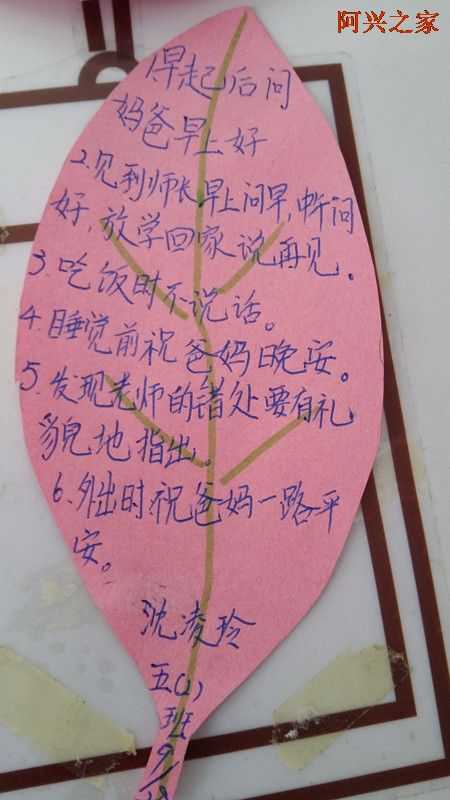 阿兴之家
1早起后问
妈爸早上好
2.见到师长早上问早,中午问
好,放学回家说再见。
3.吃饭时不说话。
4.睡觉前祝爸妈晚安。
5.发现老师的错处要有礼
貌地指出。
6.外出时祝爸妈一路平
安。
沈凌玲
五(1)
班
9/